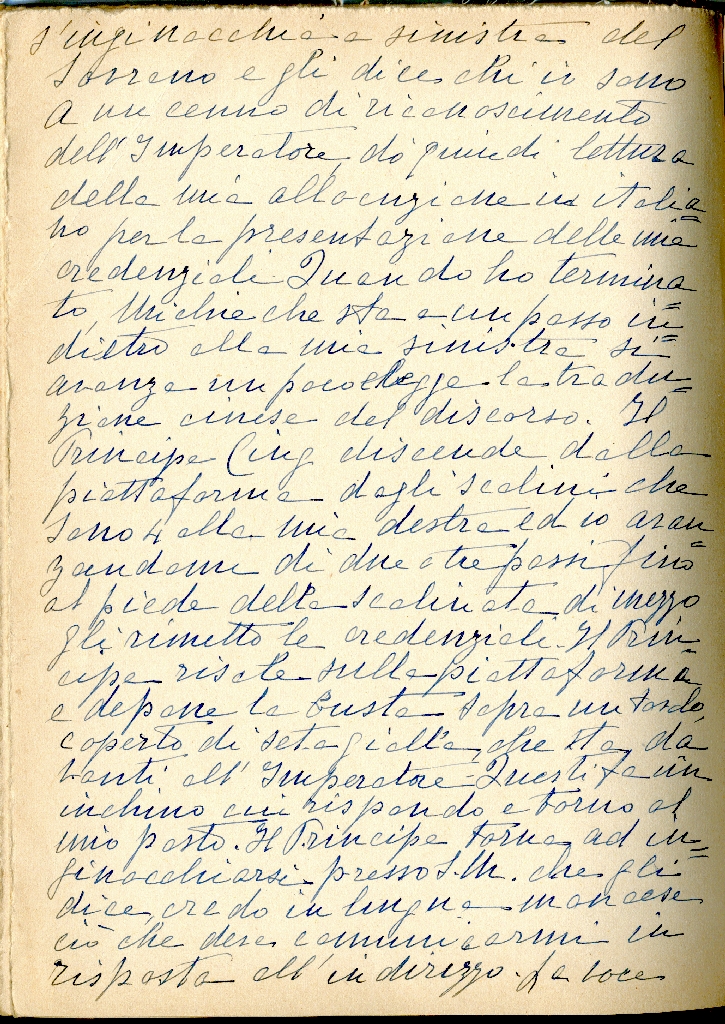 s'inginocchia a sinistra del
Sovrano e gli dice chi io sono
A un cenno di riconoscimento
dell'Imperatore, do quindi lettura
della mia allocuzione in italia=
no per la presentazione delle mie
credenziali. Quando ho termina=
to, Miche che sta a un passo in=
dietro alla mia sinistra si
avanza un poco e legge la tradu=
zione cinese del discorso. Il
Principe Cing discende dalla
piattaforma dagli scalini che
sono 4 alla mia destra ed io avan
zandomi di due o tre passi fino
al piede della scalinata di mezzo
gli rimetto le credenziali. Il Prin=
cipe risale sulla piattaforma
e depone la busta sopra un tavolo,
coperto di seta gialla, che sta da
vanti all'Imperatore. Questi fa un
inchino cui rispondo e torno al
mio posto. Il Principe torna ad in=
ginocchiarsi presso S.M. che gli
dice, credo in lingua mancese
ciò che deve comunicarmi in
risposta all'indirizzo. La voce